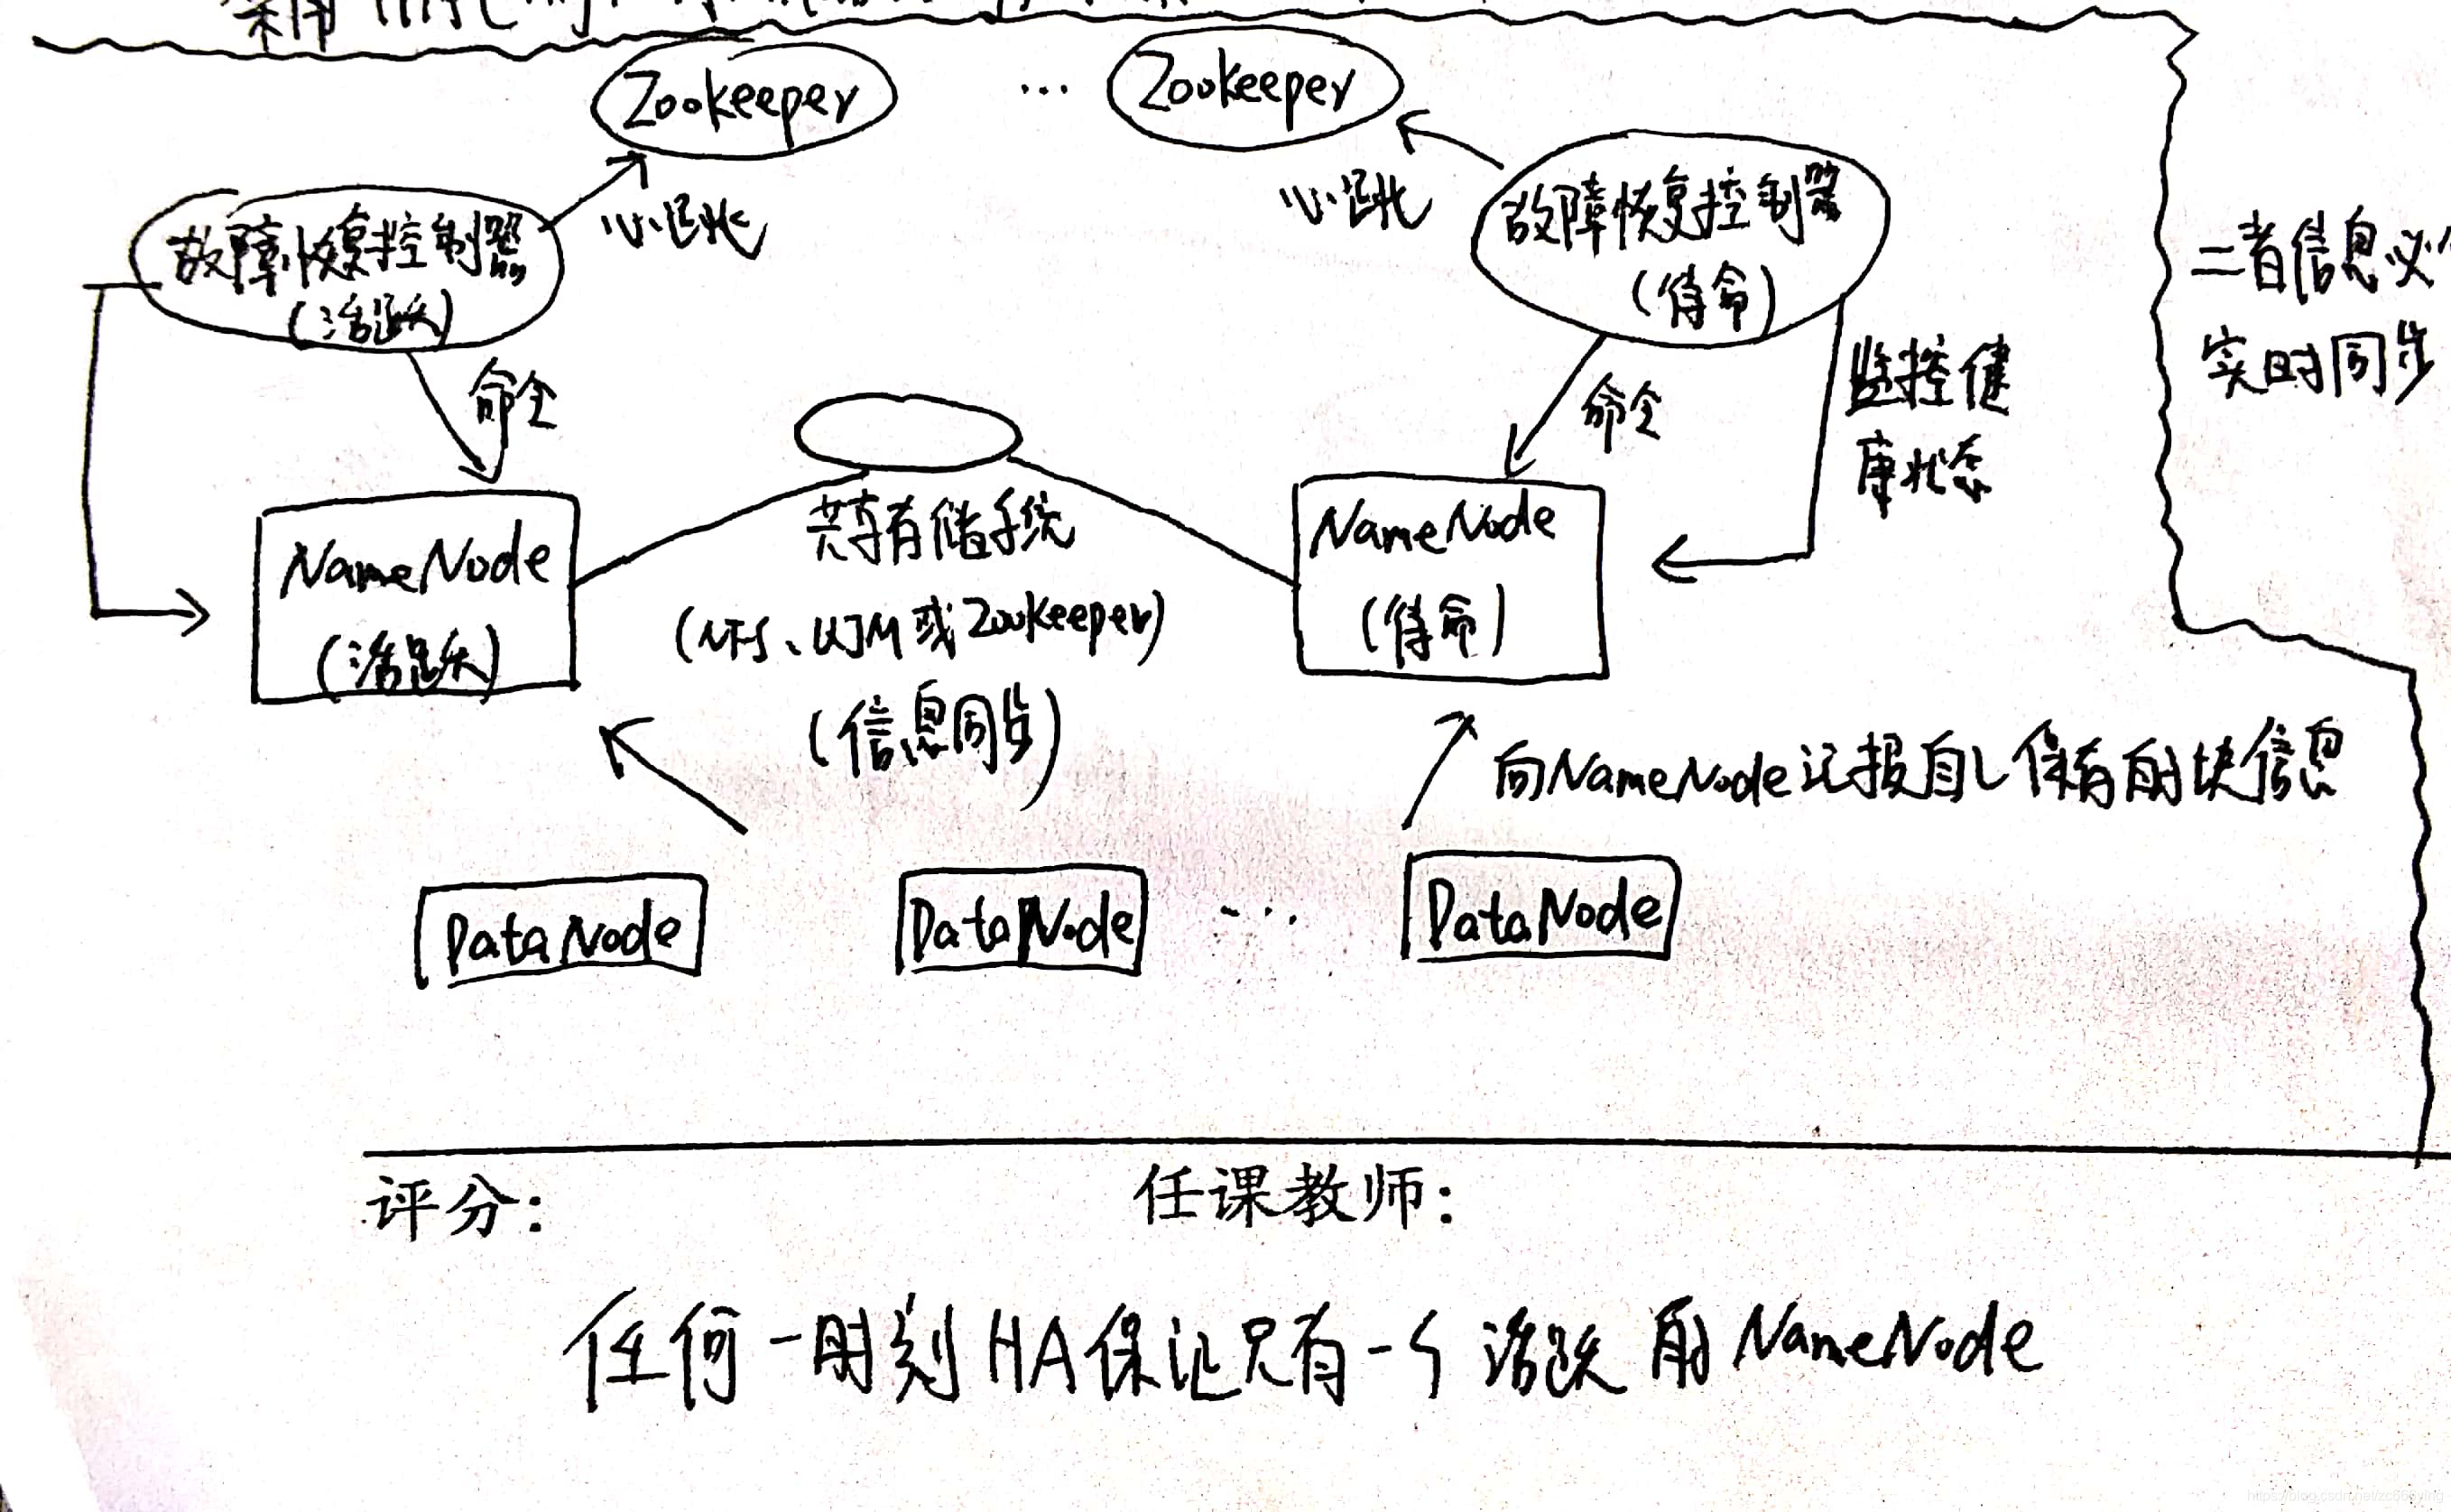 Zookeeper … Zookeeper
心跳
心跳
故障恢复控制器
(活跃)
故障恢复控制器
(待命)
二者信息必
实时同步
命令
命令
监控健
康状态
NameNode
(活跃)
共享存储系统
(NFS、QJM或Zookeeper)
(信息同步)
NameNode
(待命)
向NameNode汇报自己保存的块信息
DataNode DataNode … DataNode
评分: 任课教师:
任何一时刻HA保证只有一个活跃的NameNode